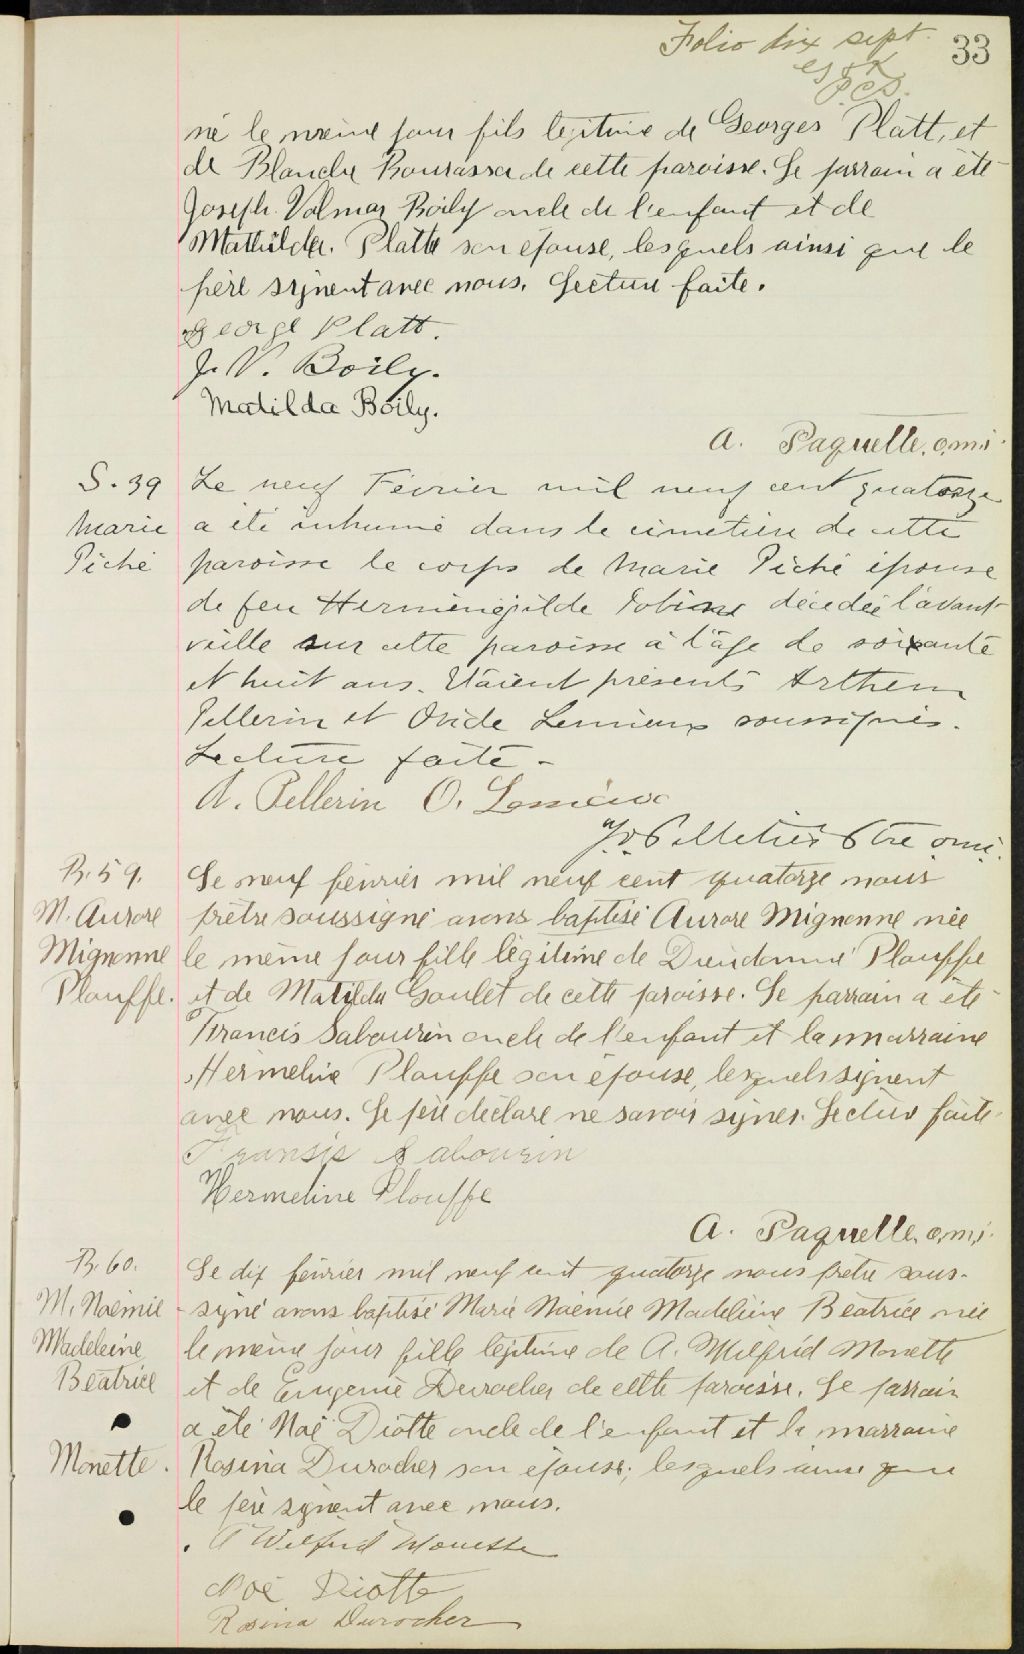 Folio dix sept. 33
né le même jour fils légitime de Georges Platt, et
de Blanche Bourassa de cette paroisse. Le parrain a été
Joseph Valmar Boily oncle de l'enfant et de
Mathilda Platt son épouse, lesquels ainsi que le
père signent avec nous. Lecture faite.
George Platt.
J. V. Boily.
Matilda Boily.
A. Paquette, o.m.i.
S. 39
Marie
Piché
Le neuf Février mil neuf cent quatorze
a été inhumé dans le cimetière de cette
paroisse le corps de Marie Piché épouse
de feu Herménégilde décédée l'avant
veille sur cette paroisse à l'âge de soixante
et huit ans. Etaient présents Arthem
Pellerin et Ovide Lemieux soussignés.
Lecture faite -
A. Pellerin O. Lemieux
Pelletier Ptre omi.
B. 59.
M. Aurore
Mignonne
Plouffe.
Le neuf février mil neuf cent quatorze nous
prêtre soussigné avons baptisé Aurore Mignonne née
le même jour fille légitime de Dieudonné Plouffe
et de Matilda Goulet de cette paroisse. Le parrain a été
Francis Sabourin oncle de l'enfant et la marraine
Hermeline Plouffe son épouse, lesquels signent
avec nous. Le père déclare ne savoir signer. Lecture faite.
Fransis Sabourin
Hermeline Plouffe
A. Paquette, o.m.i.
B. 60.
M. Noémie
Madeleine
Béatrice
Monette.
Le dix février mil neuf cent quatorze nous prêtre sous-
signé avons baptisé Marie Noémie Madeleine Béatrice née
le même jour fille légitime de A. Wilfrid Monette
et de Eugénie Durocher de cette paroisse. Le parrain
a été Noé Diotte oncle de l'enfant et la marraine
Rosina Durocher son épouse; lesquels ainsi que
le père signent avec nous.
A Wilfrid Monette
Noé Diotte
Rosina Durocher